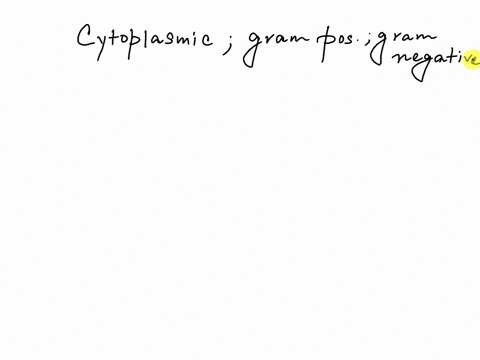 Cytoplasmic ; gram pos. ; gram
negative